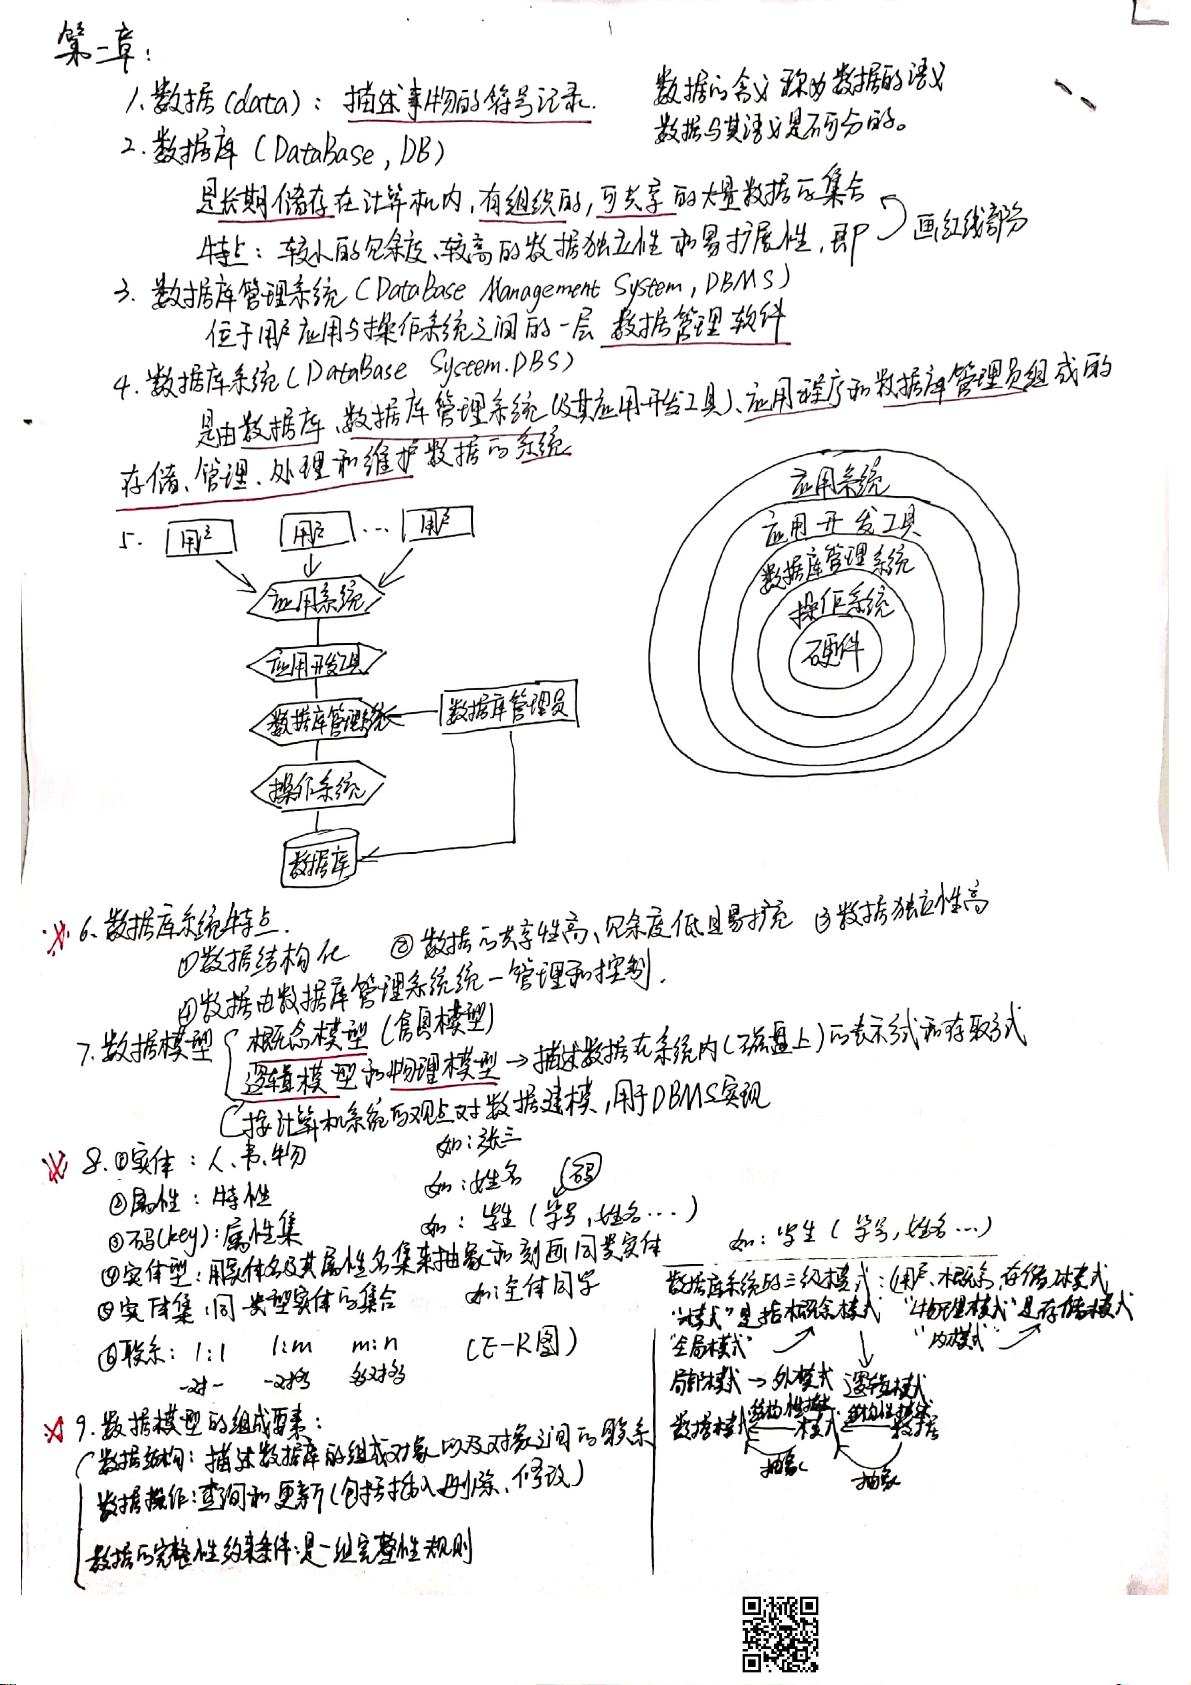 第一章：
1、数据(data)：描述事物的符号记录.
数据的含义称为数据的语义
数据与其语义是不可分的。
2.数据库(DataBase,DB)
是长期储存在计算机内,有组织的,可共享的大量数据的集合
特点：较小的冗余度、较高的数据独立性和易扩展性,即
画红线部分
3.数据库管理系统(DataBase Management System,DBMS)
位于用户应用与操作系统之间的一层数据管理软件
4.数据库系统(DataBase System.DBS)
是由数据库、数据库管理系统(及其应用开发工具)、应用程序和数据库管理员组成的
存储、管理、处理和维护数据的系统
5.
用户
用户
...
用户
应用系统
应用开发工具
数据库管理系统
数据库管理员
操作系统
数据库
应用系统
应用开发工具
数据库管理系统
操作系统
硬件
6、数据库系统特点.
①数据结构化
②数据的共享性高、冗余度低且易扩充
③数据独立性高
④数据由数据库管理系统统一管理和控制.
7.数据模型
概念模型(信息模型)
逻辑模型和物理模型→描述数据在系统内(磁盘上)的表示方式和存取方式
按计算机系统的观点对数据建模,用于DBMS实现
8.①实体：人、事、物
如：张三
②属性：特性
如：姓名
码
③码(key)：属性集
如：学生(学号,姓名...)
④实体型：用实体名及其属性名集来抽象和刻画同类实体
如：学生(学号,姓名...)
⑤实体集：同一类型实体的集合
如：全体同学
⑥联系：1:1 1:m m:n (E-R图)
一对一 一对多 多对多
9.数据模型的组成要素：
数据结构：描述数据库的组成对象以及对象之间的联系
数据操作：查询和更新(包括插入、删除、修改)
数据的完整性约束条件：是一组完整性规则
数据库系统的三级模式：(用户、概念、存储)模式
"模式"是指概念模式
"物理模式"是存储模式
"全局模式"
"内模式"
局部模式→外模式
逻辑模式
数据模式
结构性描述
模式
结构性描述
数据
抽象
抽象